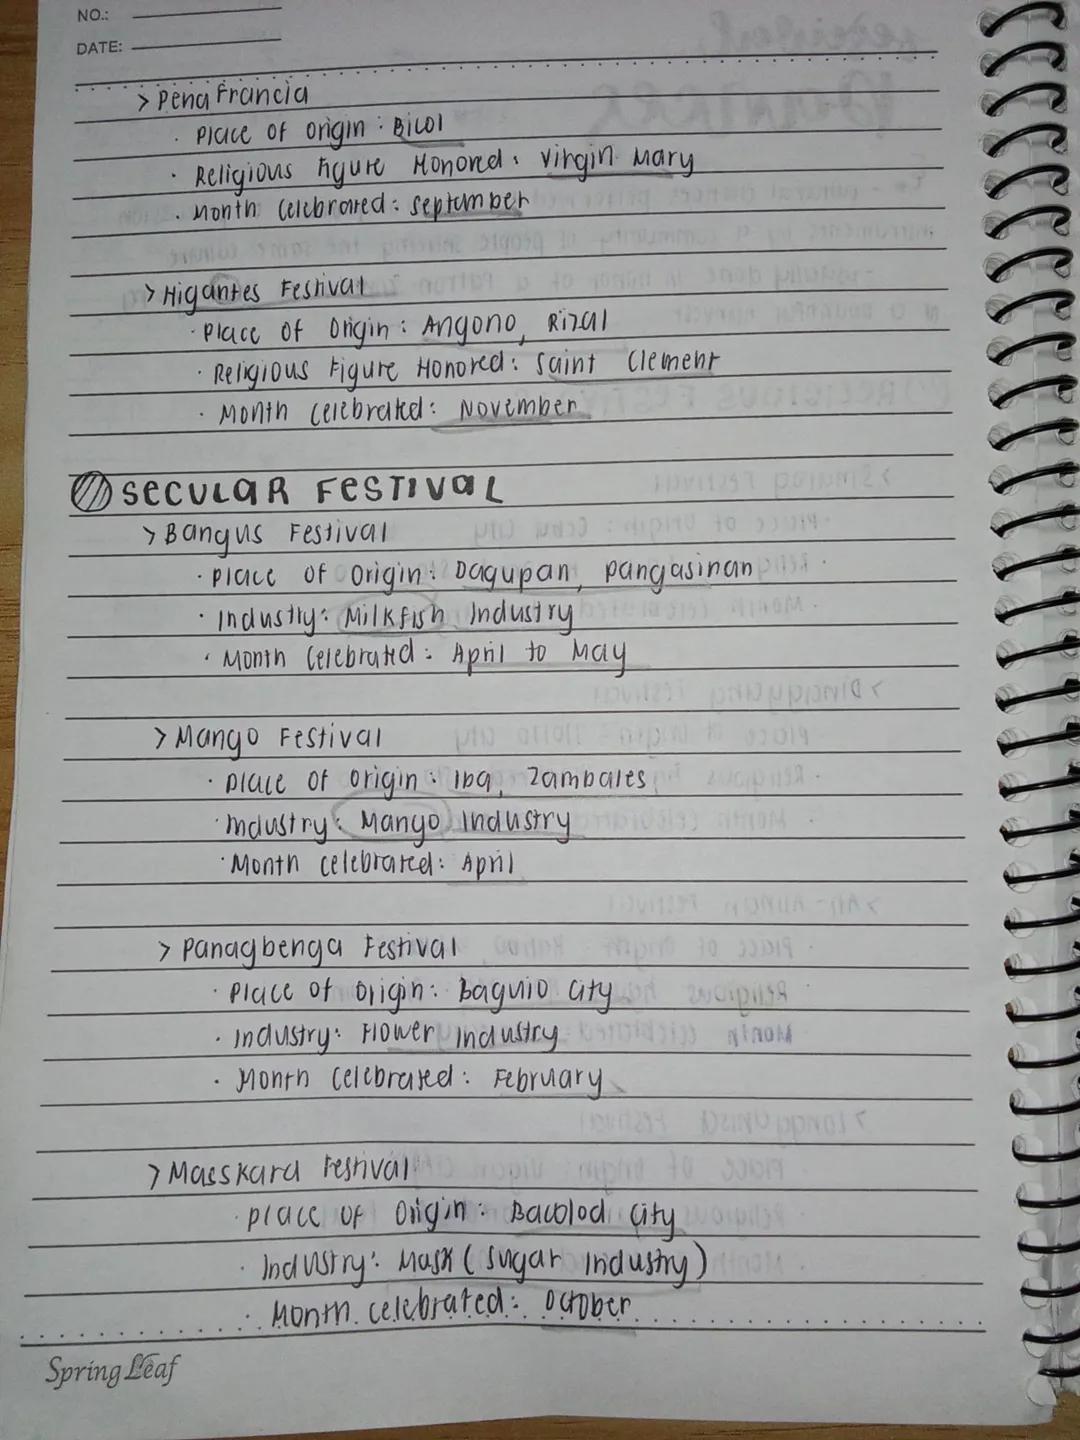 NO.:
DATE:
> Peña Francia
· Place of Origin : Bicol
· Religious Figure Honored : Virgin Mary
· Month Celebrated : September
> Higantes Festival
· Place of Origin : Angono, Rizal
· Religious Figure Honored : Saint Clement
· Month Celebrated : November
SECULAR FESTIVAL
> Bangus Festival
· Place of Origin : Dagupan, Pangasinan
· Industry : Milkfish Industry
· Month Celebrated : April to May
> Mango Festival
· Place of Origin : Iba, Zambales
· Industry : Mango Industry
· Month Celebrated : April
> Panagbenga Festival
· Place of Origin : Baguio City
· Industry : Flower Industry
· Month Celebrated : February
> Masskara Festival
· Place of Origin : Bacolod City
· Industry : Mask ( Sugar Industry )
· Month Celebrated : October
Spring Leaf